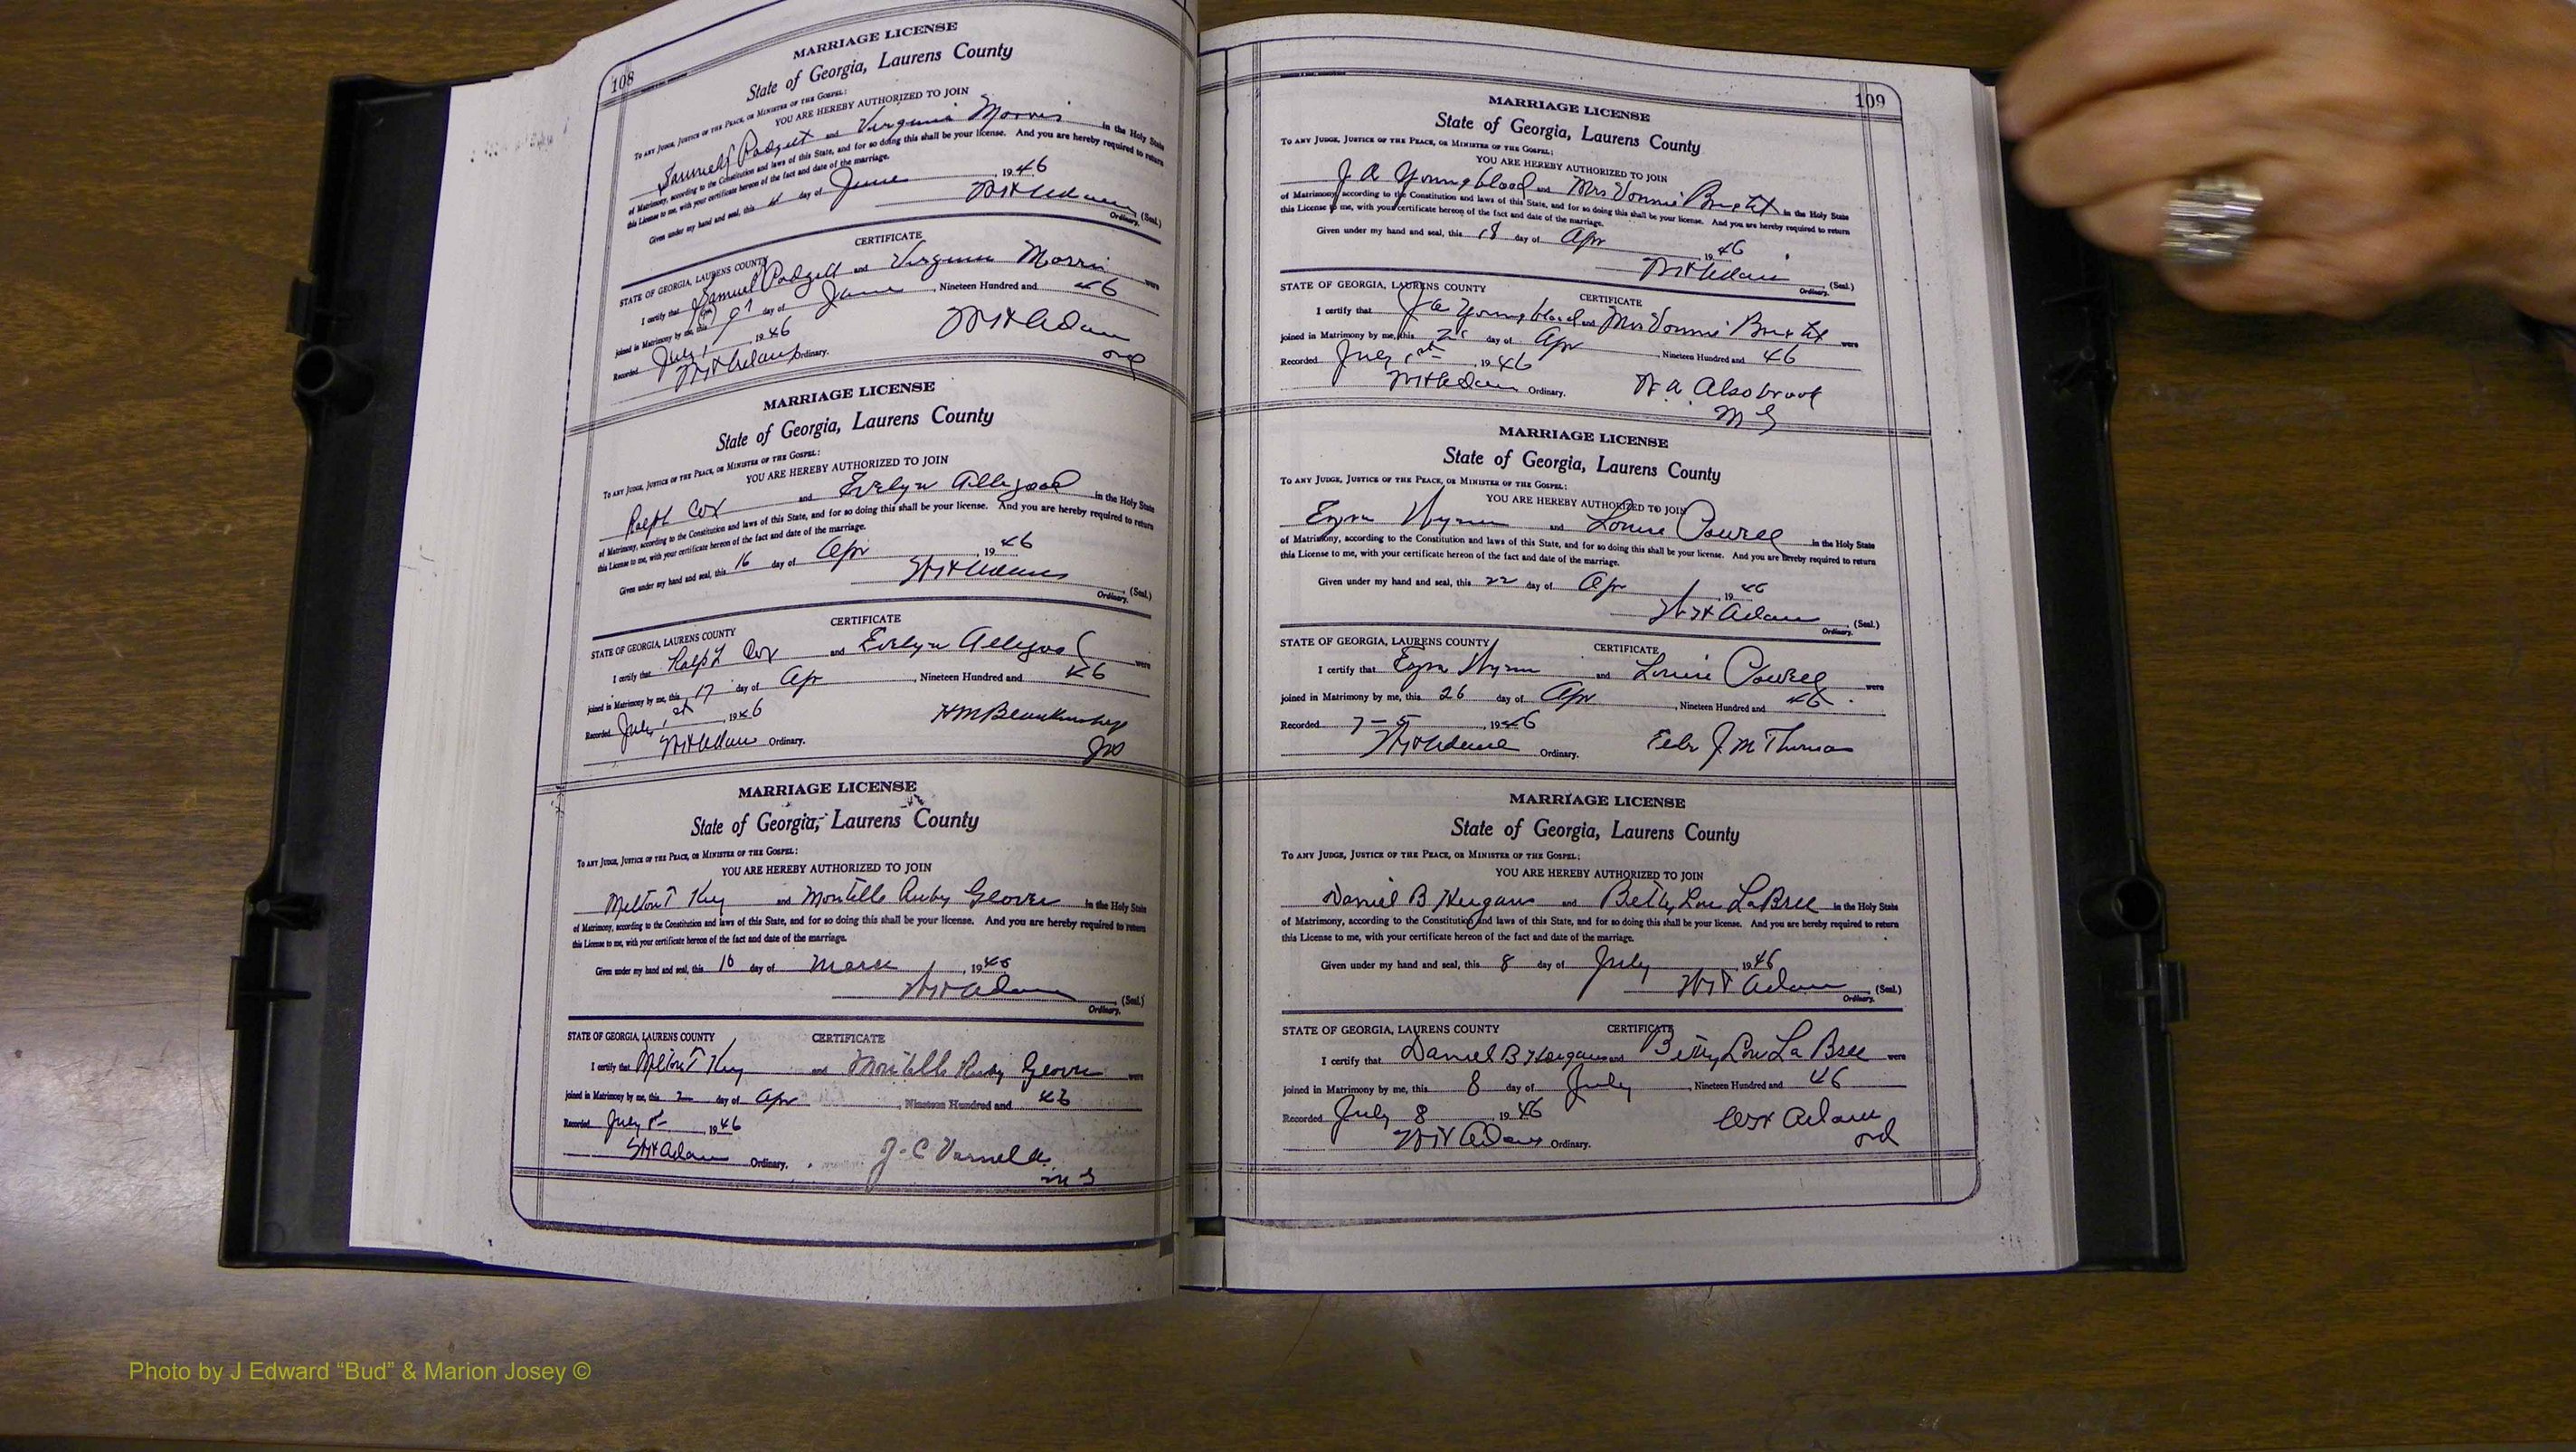 108
MARRIAGE LICENSE
State of Georgia, Laurens County
TO ANY JUDGE, JUSTICE OF THE PEACE, OR MINISTER OF THE GOSPEL:
YOU ARE HEREBY AUTHORIZED TO JOIN
Samuel Padgett and Virginia Morris in the Holy State
of Matrimony, according to the Constitution and laws of this State, and for so doing this shall be your license. And you are hereby required to return
this License to me, with your certificate hereon of the fact and date of the marriage.
Given under my hand and seal, this day of June, 1946
Adams (Seal.)
Ordinary.
CERTIFICATE
STATE OF GEORGIA, LAURENS COUNTY
I certify that Samuel Padgett and Virginia Morris were
joined in Matrimony by me, this day of June, Nineteen Hundred and 46
Recorded July 1, 1946
Adams Ordinary. Adams
MARRIAGE LICENSE
State of Georgia, Laurens County
TO ANY JUDGE, JUSTICE OF THE PEACE, OR MINISTER OF THE GOSPEL:
YOU ARE HEREBY AUTHORIZED TO JOIN
Ralph Cox and Evelyn Allegood in the Holy State
of Matrimony, according to the Constitution and laws of this State, and for so doing this shall be your license. And you are hereby required to return
this License to me, with your certificate hereon of the fact and date of the marriage.
Given under my hand and seal, this 16 day of Apr, 1946
Adams (Seal.)
Ordinary.
CERTIFICATE
STATE OF GEORGIA, LAURENS COUNTY
I certify that Ralph Cox and Evelyn Allegood were
joined in Matrimony by me, this 17 day of Apr, Nineteen Hundred and 46
Recorded July 1st, 1946 H M Blankenship
Adams Ordinary.
MARRIAGE LICENSE
State of Georgia, Laurens County
TO ANY JUDGE, JUSTICE OF THE PEACE, OR MINISTER OF THE GOSPEL:
YOU ARE HEREBY AUTHORIZED TO JOIN
Melton T Key and Montelle Ruby Glover in the Holy State
of Matrimony, according to the Constitution and laws of this State, and for so doing this shall be your license. And you are hereby required to return
this License to me, with your certificate hereon of the fact and date of the marriage.
Given under my hand and seal, this day of, 1946
Adams (Seal.)
Ordinary.
STATE OF GEORGIA, LAURENS COUNTY CERTIFICATE
I certify that Melton T Key and Montelle Ruby Glover were
joined in Matrimony by me, this 2 day of Apr, Nineteen Hundred and 46
Recorded July, 1946
Adams Ordinary. J. C
109
MARRIAGE LICENSE
State of Georgia, Laurens County
TO ANY JUDGE, JUSTICE OF THE PEACE, OR MINISTER OF THE GOSPEL:
YOU ARE HEREBY AUTHORIZED TO JOIN
J A Youngblood and Mrs Vonnie in the Holy State
of Matrimony, according to the Constitution and laws of this State, and for so doing this shall be your license. And you are hereby required to return
this License to me, with your certificate hereon of the fact and date of the marriage.
Given under my hand and seal, this 18 day of Apr 1946
Adams (Seal.)
Ordinary.
STATE OF GEORGIA, LAURENS COUNTY CERTIFICATE
I certify that J A Youngblood and Mrs Vonnie were
joined in Matrimony by me, this day of Apr, Nineteen Hundred and 46
Recorded July 1st, 1946
Adams Ordinary. Alsobrook
M G
MARRIAGE LICENSE
State of Georgia, Laurens County
TO ANY JUDGE, JUSTICE OF THE PEACE, OR MINISTER OF THE GOSPEL:
YOU ARE HEREBY AUTHORIZED TO JOIN
Ezra Wynn and Louise Powell in the Holy State
of Matrimony, according to the Constitution and laws of this State, and for so doing this shall be your license. And you are hereby required to return
this License to me, with your certificate hereon of the fact and date of the marriage.
Given under my hand and seal, this 22 day of Apr, 1946
Adams (Seal.)
Ordinary.
STATE OF GEORGIA, LAURENS COUNTY CERTIFICATE
I certify that Ezra Wynn and Louise Powell were
joined in Matrimony by me, this 26 day of Apr, Nineteen Hundred and 46
Recorded 7-5, 1946
Adams Ordinary. J. M Thomas
MARRIAGE LICENSE
State of Georgia, Laurens County
TO ANY JUDGE, JUSTICE OF THE PEACE, OR MINISTER OF THE GOSPEL:
YOU ARE HEREBY AUTHORIZED TO JOIN
Daniel B and Betty Lou LaBree in the Holy State
of Matrimony, according to the Constitution and laws of this State, and for so doing this shall be your license. And you are hereby required to return
this License to me, with your certificate hereon of the fact and date of the marriage.
Given under my hand and seal, this 8 day of July, 1946
Adams (Seal.)
Ordinary.
STATE OF GEORGIA, LAURENS COUNTY CERTIFICATE
I certify that Daniel B and Betty Lou La Bree were
joined in Matrimony by me, this 8 day of July, Nineteen Hundred and 46
Recorded July 8, 1946 Adams
Adams Ordinary. ord
Photo by J Edward “Bud” & Marion Josey ©